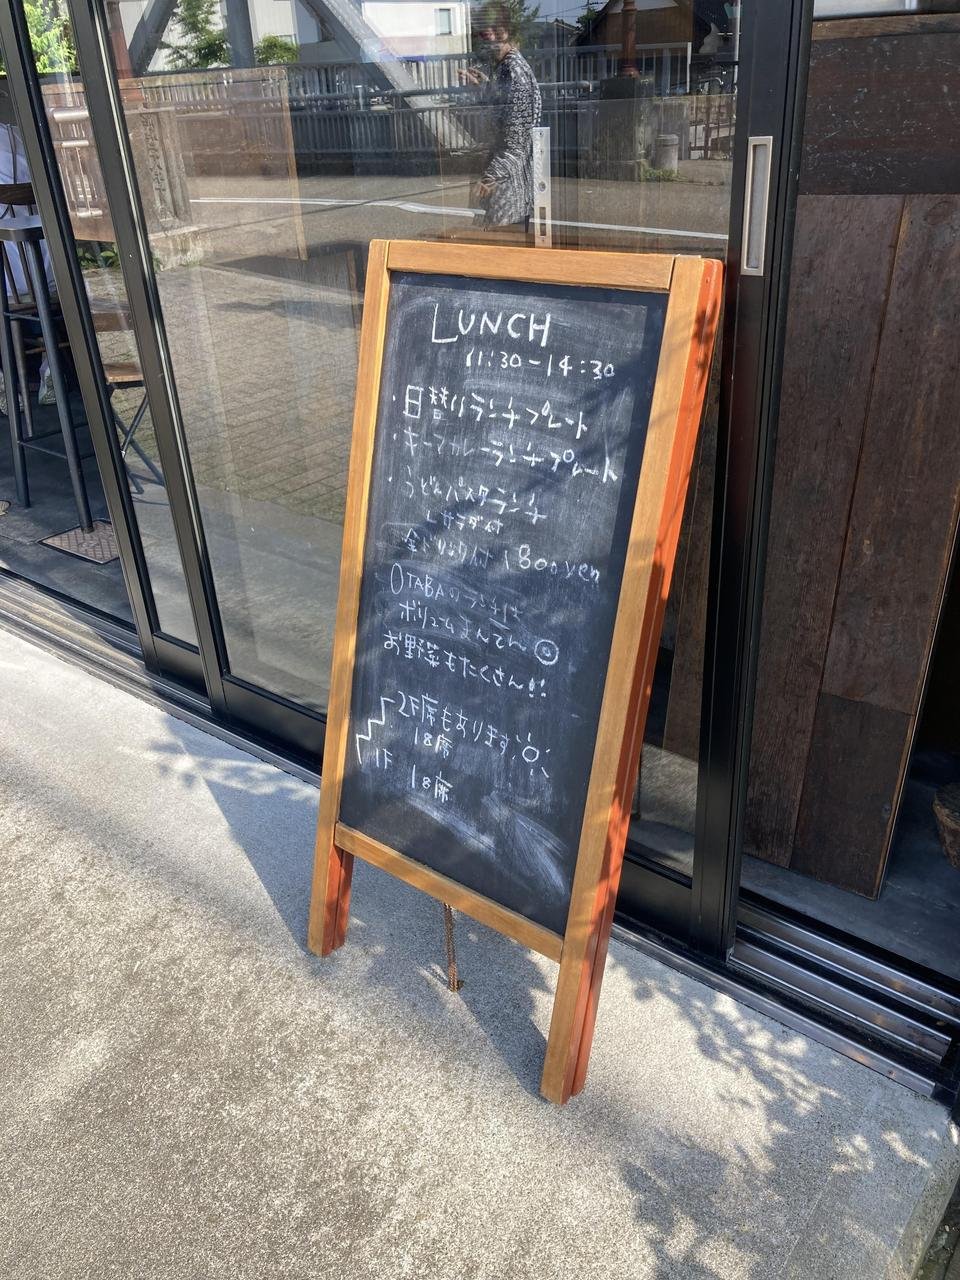 LUNCH
11:30-14:30
・日替りランチプレート
・キーマカレーランチプレート
・うどんパスタランチ
サラダ付
全ドリンク付 1800yen
OTABAのランチは
ボリュームまんてん◎
お野菜もたくさん!!
2F席もあります
18席
1F 18席